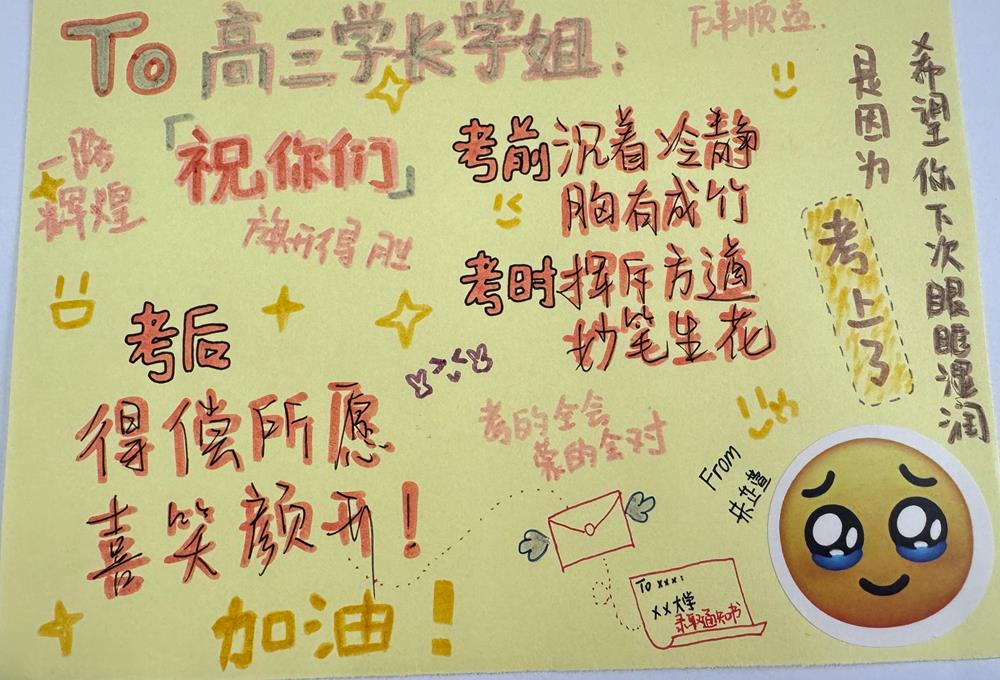 To 高三学长学姐：
万事顺意.
一路
辉煌
「祝你们」
旗开得胜
考前沉着冷静
胸有成竹
考时挥斥方遒
妙笔生花
考后
得偿所愿
喜笑颜开！
考的全会
蒙的全对
加油！
希望你下次眼眶湿润
是因为
考上了
From
To xxx：
XX大学
录取通知书